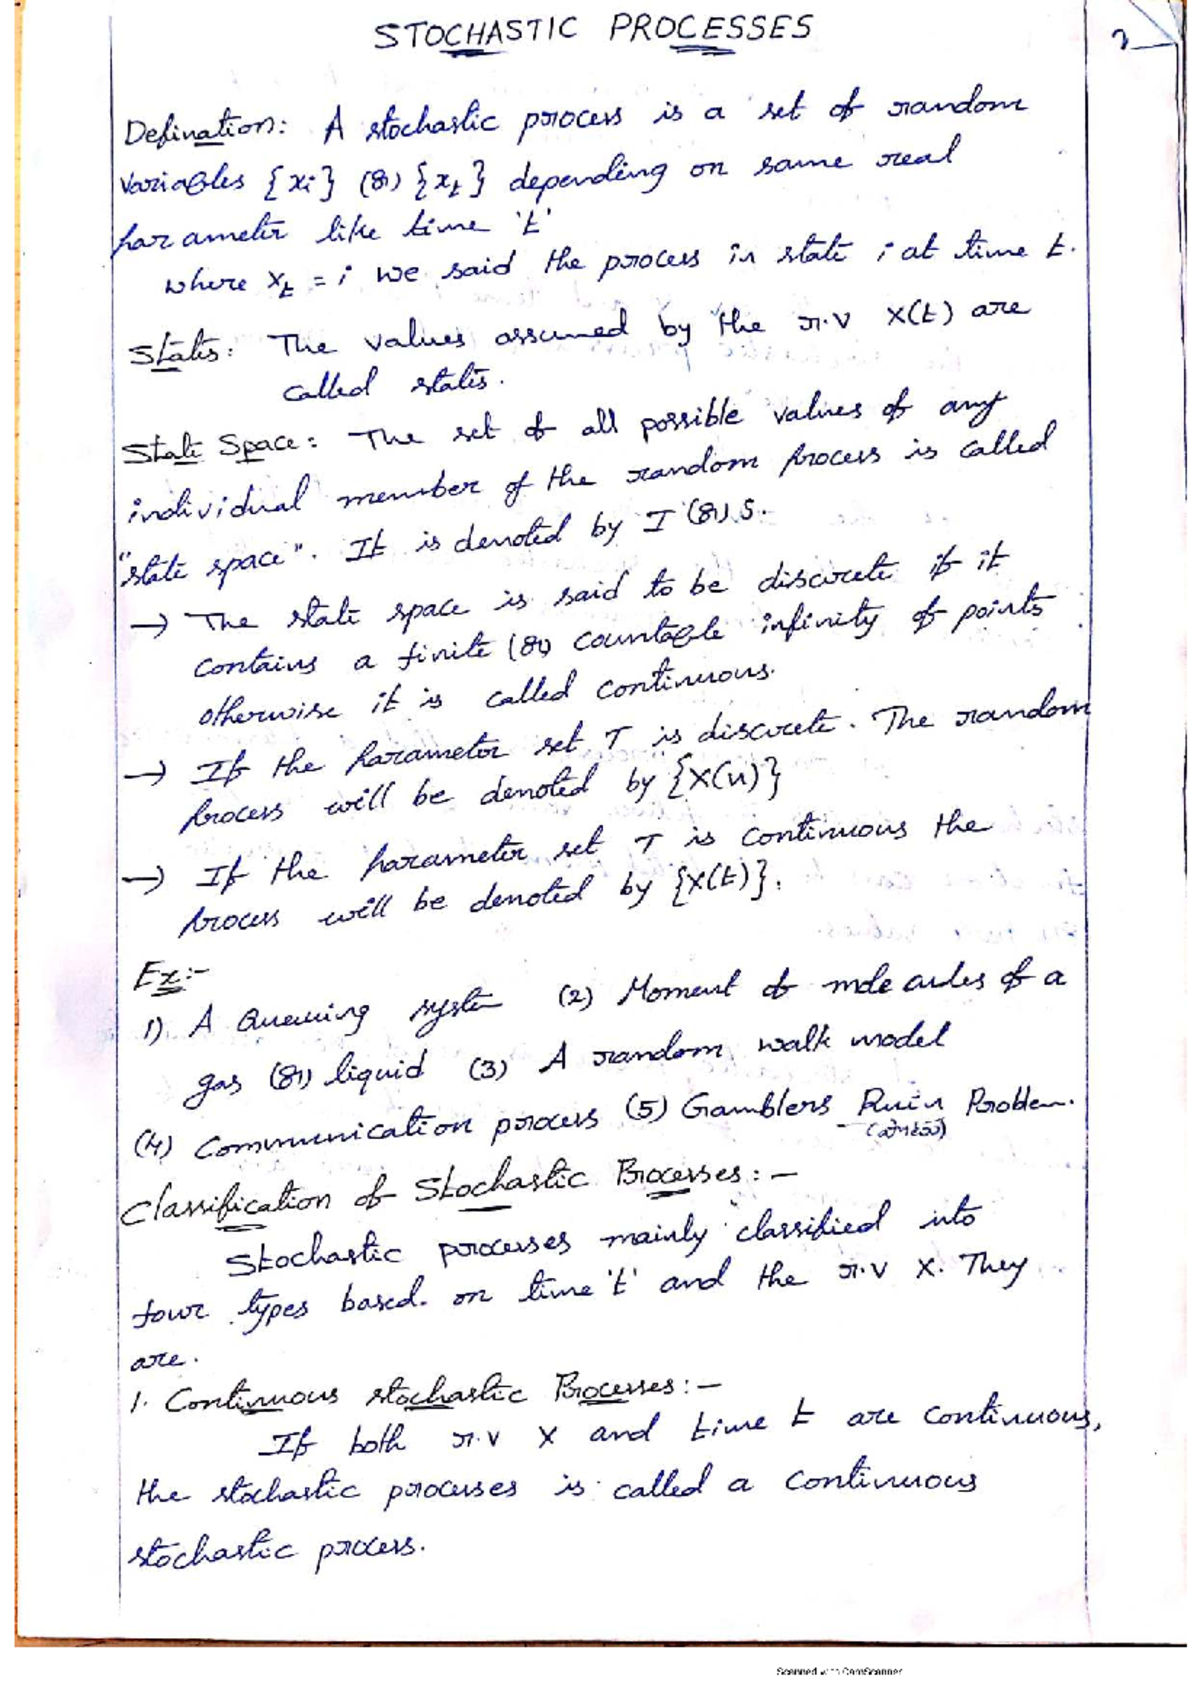 STOCHASTIC PROCESSES
Defination: A stochastic process is a set of random
variables {xi} (or) {xt} depending on same real
parameter like time 't'
where xt = i we said the process in state i at time t.
States: The values assumed by the r.v X(t) are
called states.
State Space: The set of all possible values of any
individual member of the random process is called
"state space". It is denoted by I (or) S.
→ The state space is said to be discrete if it
contains a finite (or) countable infinity of points
otherwise it is called continuous.
→ If the parameter set T is discrete. The random
process will be denoted by {X(n)}
→ If the parameter set T is continuous the
process will be denoted by {X(t)}.
Ex:-
1) A Queuing system (2) Moment of molecules of a
gas (or) liquid (3) A random walk model
(4) Communication process (5) Gamblers Ruin Problem.
Classification of Stochastic Processes:-
Stochastic processes mainly classified into
four types based on time 't' and the r.v X. They
are.
1. Continuous stochastic Processes:-
If both r.v X and time t are continuous,
the stochastic processes is called a continuous
stochastic process.
Scanned with CamScanner